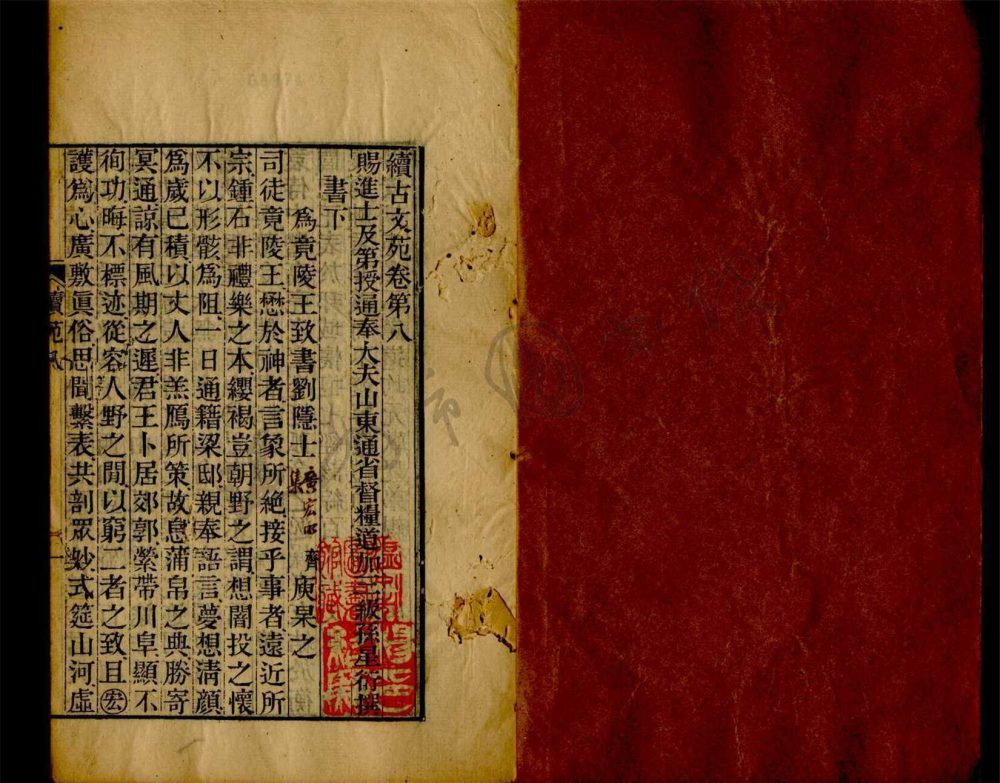 續古文苑卷第八
賜進士及第授通奉大夫山東通省督糧道加三級孫星衍撰
書下
爲竟陵王致書劉隱士 廣宏明集 齊庾杲之
司徒竟陵王懋於神者言象所絕接乎事者遠近所
宗鍾石非禮樂之本纓褐豈朝野之謂想闇投之懷
不以形骸爲阻一日通籍梁邸親奉語言夢想淸顏
爲歲已積以丈人非羔鴈所策故息蒲帛之典勝寄
冥通諒有風期之遲君王卜居郊郭縈帶川阜顯不
徇功晦不標迹從容人野之閒以窮二者之致且宏
護爲心廣敷眞俗思聞繫表共剖眾妙式筵山河虛
續苑八